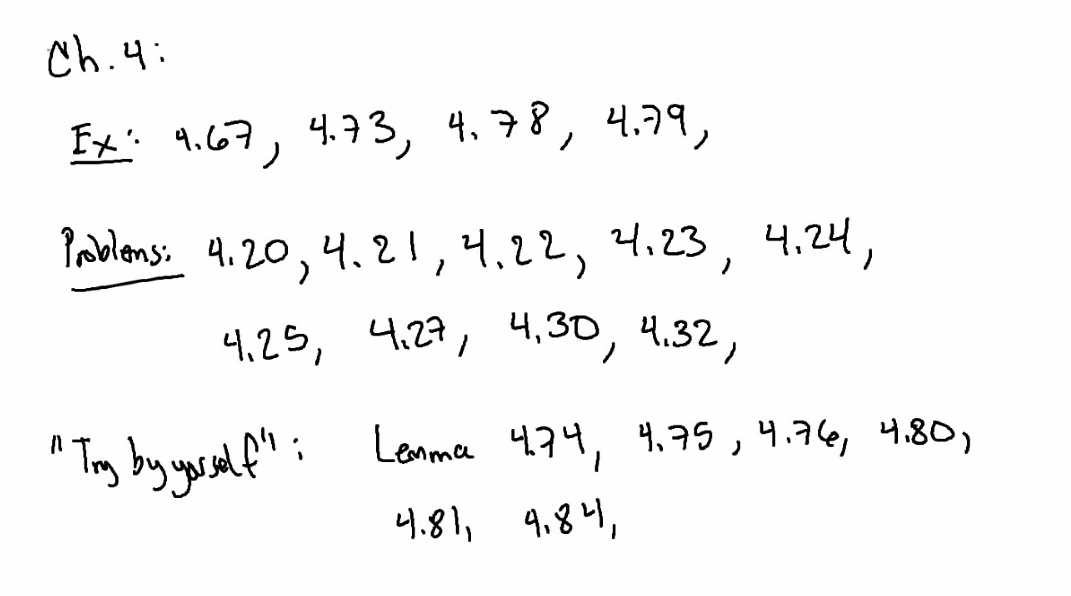 Ch. 4:
Ex: 4.67, 4.73, 4.78, 4.79,
Problems: 4.20, 4.21, 4.22, 4.23, 4.24,
4.25, 4.27, 4.30, 4.32,
"Try by yourself": Lemma 4.74, 4.75, 4.76, 4.80,
4.81, 4.84,